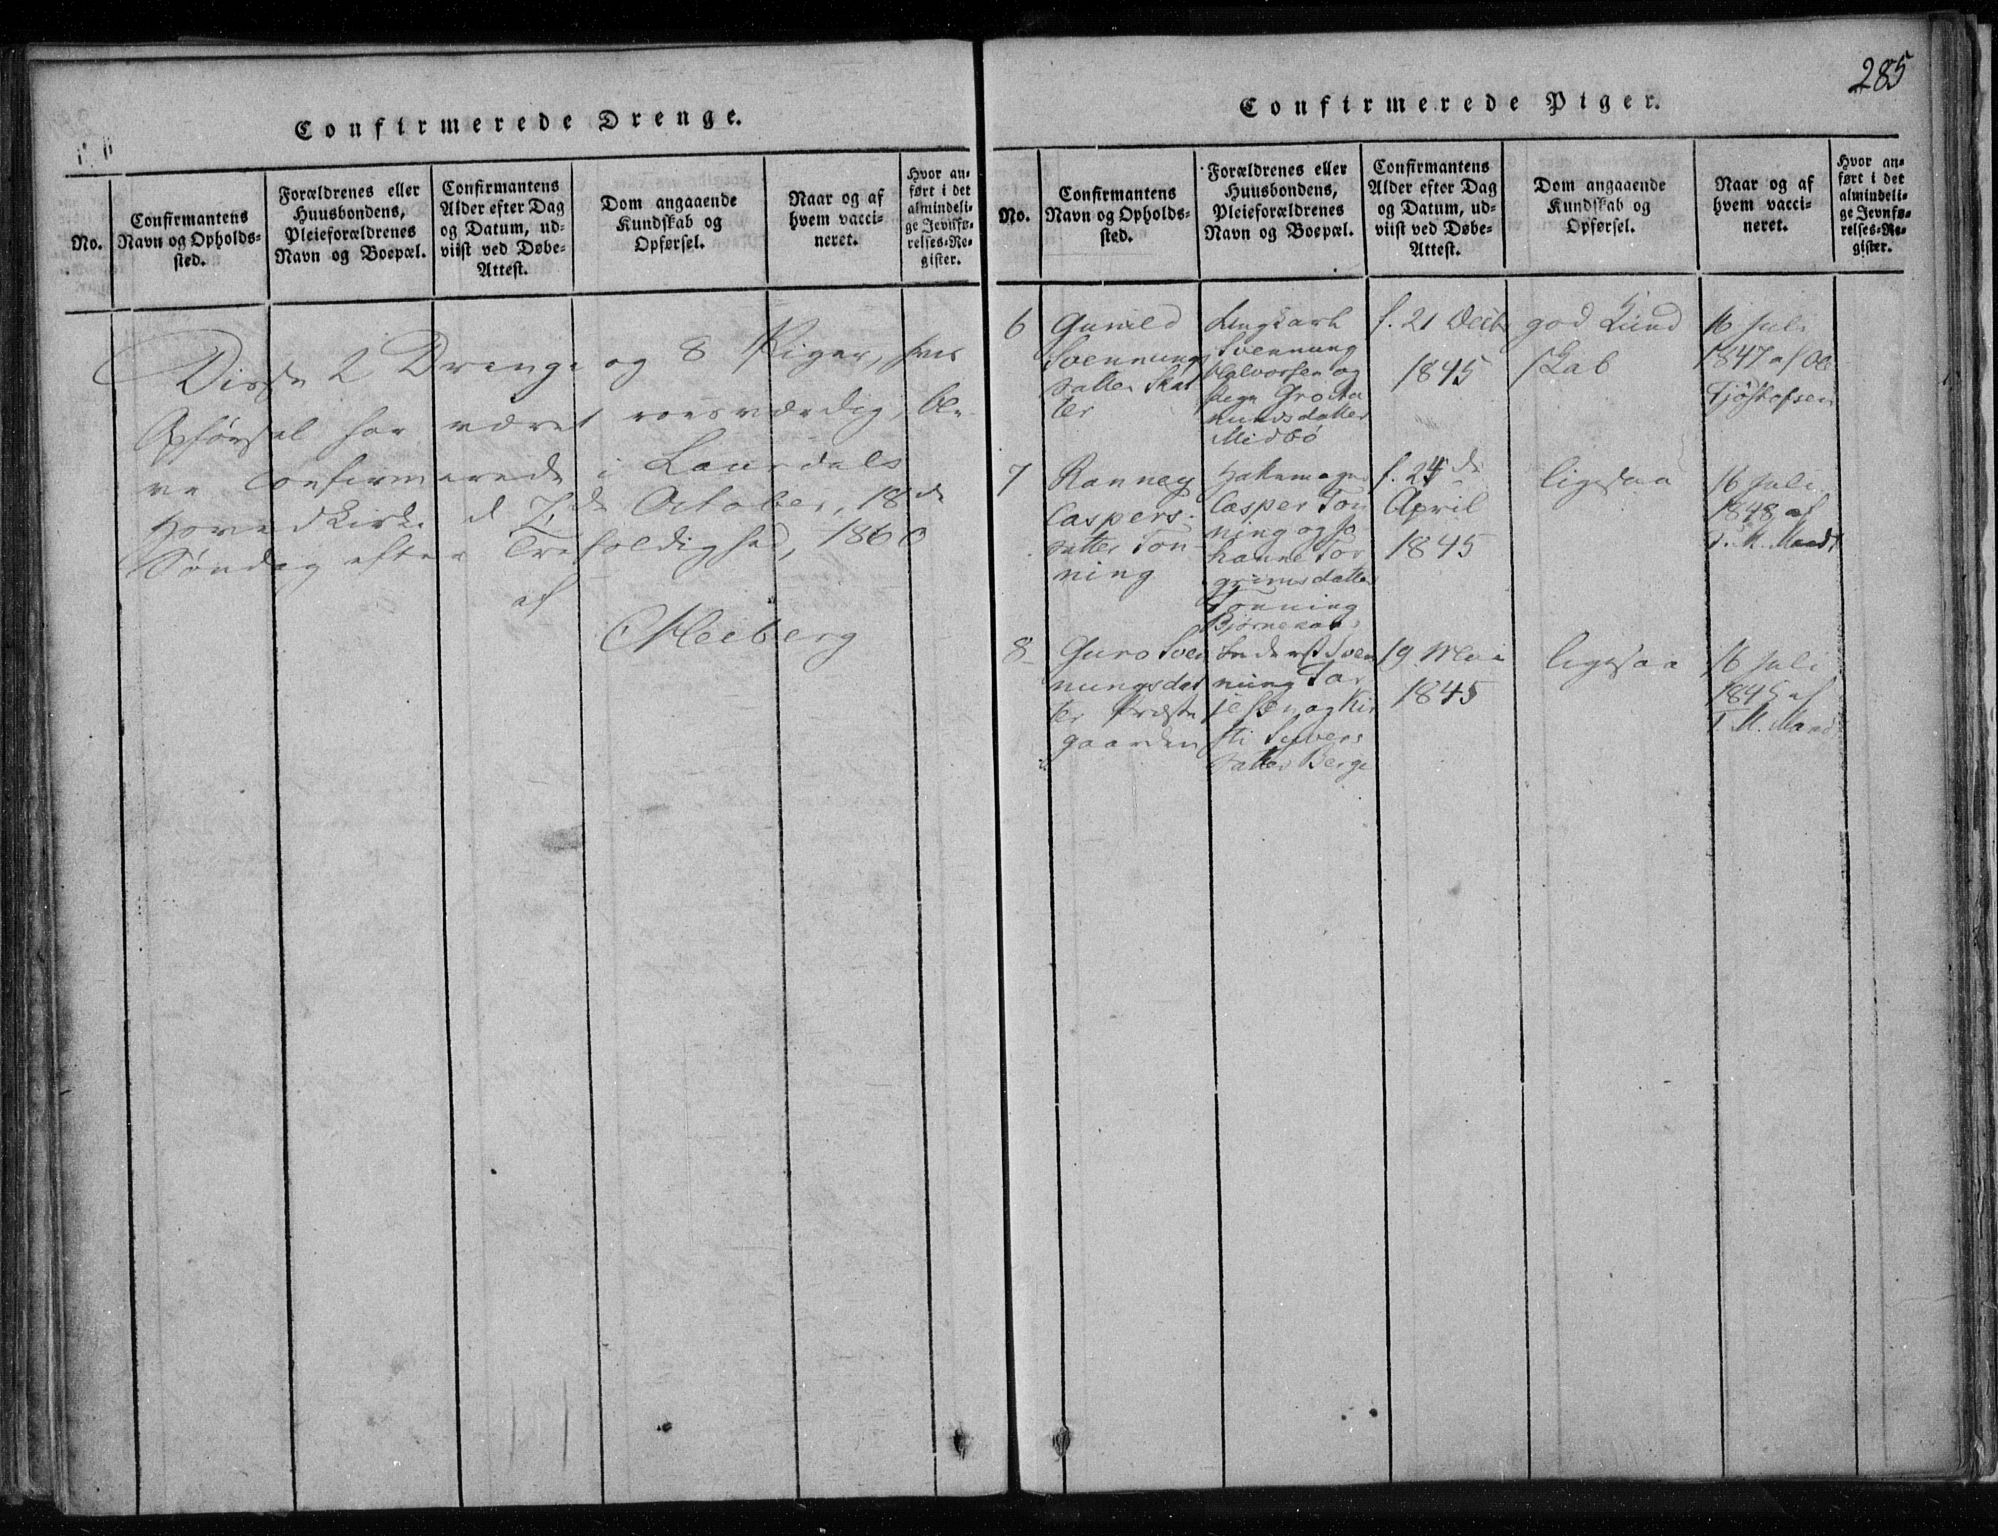 Confirmerede Drenge.
No.
Confirmantens
Navn og Opholds-
sted.
Forældrenes eller
Huusbondens,
Pleieforældrenes
Navn og Boepæl.
Confirmantens
Alder efter Dag
og Datum, ud-
viist ved Døbe-
Attest.
Dom angaaende
Kundskab og
Opførsel.
Naar og af
hvem vacci-
neret.
Hvor an-
ført i det
almindeli-
ge Jevnfø-
relses-Re-
gister.
Disse 2 Drenge og 8 Piger, hvis
Opførsel har været roesværdig, ble-
ve confirmerede i Laurdals
Hovedkirke d 7de October, 18de
Søndag efter Trefoldighed, 1860
af
Meeberg
285
Confirmerede Piger.
No.
Confirmantens
Navn og Opholds-
sted.
Forældrenes eller
Huusbondens,
Pleieforældrenes
Navn og Boepæl.
Confirmantens
Alder efter Dag
og Datum, ud-
viist ved Døbe-
Attest.
Dom angaaende
Kundskab og
Opførsel.
Naar og af
hvem vacci-
neret.
Hvor an-
ført i det
almindeli-
ge Jevnfø-
relses-Re-
gister.
6
Gunild
Svennungs
datter Skal
ter
Svennung
Halvorsen og
Pige Gro
nundsdatter
Midbø
f. 21 Decbr
1845
god Kund
skab
16 Juli
1847 af Ole
Tjøstofsen
7
Ranney
Caspers-
datter Ton
ning
Casper Ton
ning og Jo
hanne Tor
grimsdatter
Tonning
f. 24de
April
1845
ligesaa
16 Juli
1848 af
T. M. Mandt
8
Guro Sven
nungsdat
ter Præste
gaarden
Inderst Sven
nung Tar
jesen og Kir
sti Sivers
datter Berge
19 Mai
1845
ligesaa
16 Juli
1845 af
T. M. Mandt